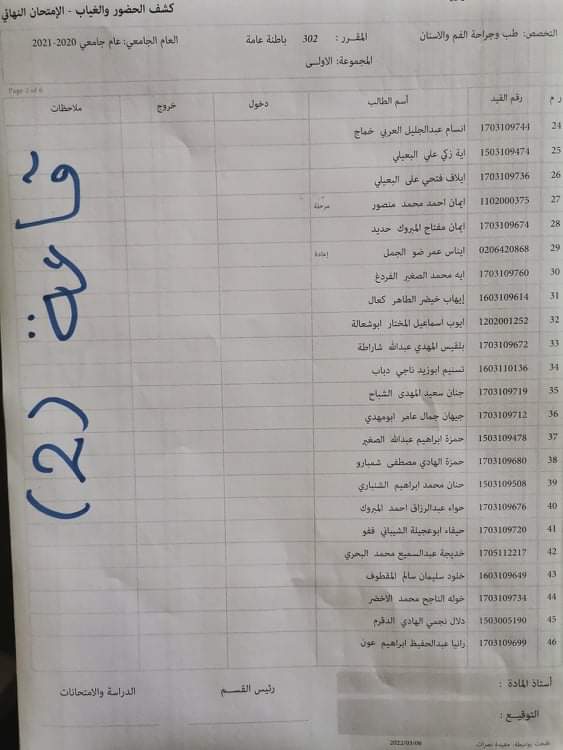 كشف الحضور والغياب - الإمتحان النهائي
التخصص: طب وجراحة الفم والاسنان المقـرر : 302 باطنة عامة العام الجامعي: عام جامعي 2020-2021
المجموعة: الاولـى
Page 2 of 6
ر م رقم القيد أسم الطالب دخول خروج ملاحظات
24 1703109744 انسام عبدالجليل العربي خماج
25 1503109474 اية زكي علي البعيلي
26 1703109736 ايلاف فتحي على البعيلي
27 1102000375 ايمان احمد محمد منصور مرحلة
28 1703109674 ايمان مفتاح المبروك حديد
29 0206420868 ايناس عمر ضو الجمل إعادة
30 1703109760 ايه محمد الصغير القردغ
31 1603109614 إيهاب خيضر الطاهر كعال
32 1202001252 ايوب اسماعيل المختار ابوشعالة
33 1703109672 بلقيس المهدي عبدالله شاراطة
34 1603110136 تسنيم ابوزيد ناجي دباب
35 1703109719 جنان سعيد المهدى الشباح
36 1703109712 جيهان جمال عامر ابومهدي
37 1503109478 حمزة ابراهيم عبدالله الصغير
38 1703109680 حمزة الهادي مصطفى شمبارو
39 1503109508 حنان محمد ابراهيم الشنباري
40 1703109676 حواء عبدالرزاق احمد المبروك
41 1703109720 حيفاء ابوعجيلة الشيباني ففو
42 1705112217 خديجة عبدالسميع محمد البحري
43 1603109649 خلود سليمان سالم المقطوف
44 1703109734 خوله الناجح محمد الأخضر
45 1503005190 دلال نجمي الهادي الدقرم
46 1703109699 رانيا عبدالحفيظ ابراهيم عون
قاعة (2)
أستاذ المادة : رئيس القسـم الدراسة والامتحانات
التوقيـع :
طبعت بواسطة: مفيدة نصرات 2022/03/06